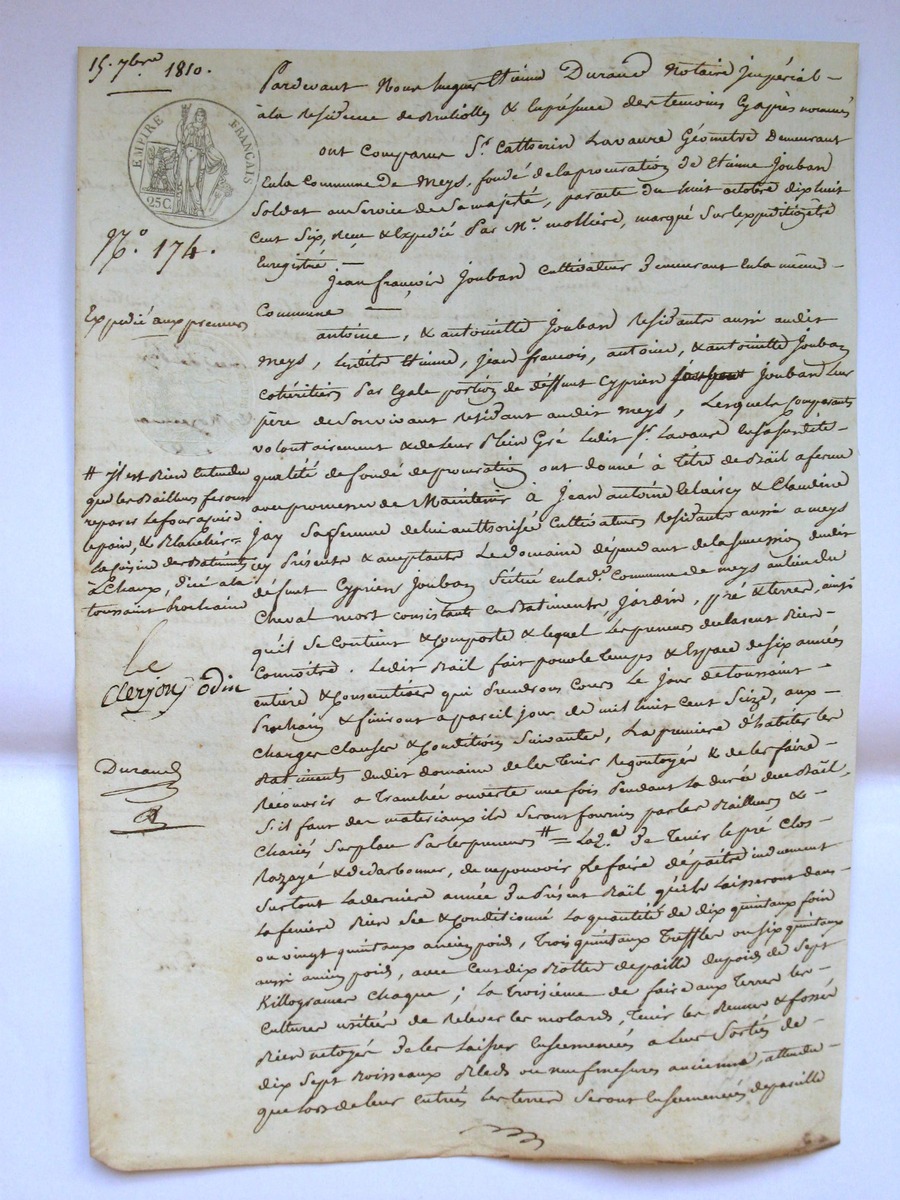 15. 7bre 1810.
EMPIRE FRANÇAIS
25C
N.º 174.
Expedié aux preneurs
# il est Bien Entendu
que les Bailleurs feront
reparer le four a cuire
le pain, & Blanchir =
la cuisine des Batiments
à Chaux, d'icé a la
toussaint prochaine
le
Clerjon odin
Durand
Pardevant Nous hugues Etienne Durand Notaire Impérial -
à la Residence de & En présence des temoins Cy après nommés
ont Comparus Sr. Catherin Lavaure Géometre Demeurant
En la Commune De Meys, fondé de la procuration de Etienne Jouban
Soldat au Service de Sa majesté, paracte du huit octobre dix huit
Cent Six, Reçu & Expedié Par Me. mollière, marqué Sur l'expedition être
Enregistré. —
Jean françois Jouban Cultivateur Demeurant En la même -
Commune —
antoine, & antoinette Jouban Residants aussi audit
Meys, lesdits Etienne, Jean françois, antoine, & antoinette Jouban
Cohéritiers Par Egale portion de deffunt Cyprien Jouban Leur
père de Son vivant Residant audit Meys, Lesquels Comparants
volontairement & de Leur Plein Gré Ledit Sr. Lavaure En Sa Susdite
qualité de fondé de procuration ont donné à titre de Bail a ferme
avec promesse de Maintenir à Jean antoine & Claudine
Jay Sa femme de lui authorisée Cultivateurs Residants aussi a meys
cy Présents & acceptants Le domaine dépendant de la Succession dudit
défunt Cyprien Jouban Situé En lad.e Commune de meys au lieu du
Cheval mort Consistant En Batiments, Jardin, pré & terres, ainsi
qu'il Se Contient & Comporte & lequel Les preneurs declarent Bien
Connoitre. Ledit Bail fait pour le temps & Espace de Six années
entière & Consécutives qui Prendront Cours Le Jour de toussaint -
Prochain & finiront a pareil jour de mil huit Cent Seize, aux -
Charges Clauses & Conditions Suivantes, La première d'habiter les
Batiments dudit domaine de les Tenir Regoutoyés & de les faire -
Recouvrir a Tranchée ouverte une fois Pendant la durée du Bail,
S'il faut des materiaux ils Seront fournis par les Bailleurs & -
Chariés Sur place Par les preneurs # = La 2.e De Tenir le pré Clos
Razayé & de ne pouvoir le faire dépaître induement
Surtout La derniere année Du Présent Bail qu'ils Laisseront dans -
La feniere Bien Sec & Conditionné La quantité de dix quintaux foin
ou vingt quintaux ancien poids, Trois quintaux Treffles ou Six quintaux
aussi ancien poids, avec Cent dix Bottes de paille du poids de Sept
Killogrames Chaque; La Troisième de faire aux Terres les -
Cultures usitées de Relever les molards, Tenir les & fossés
Bien netoyés De les Laisser Ensemencées a Leur Sortie de -
dix Sept Boisseaux Bleds ou neuf mesures ancienne, attendu -
que Lors de leur entrée les terres Seront Ensemencées de pareille